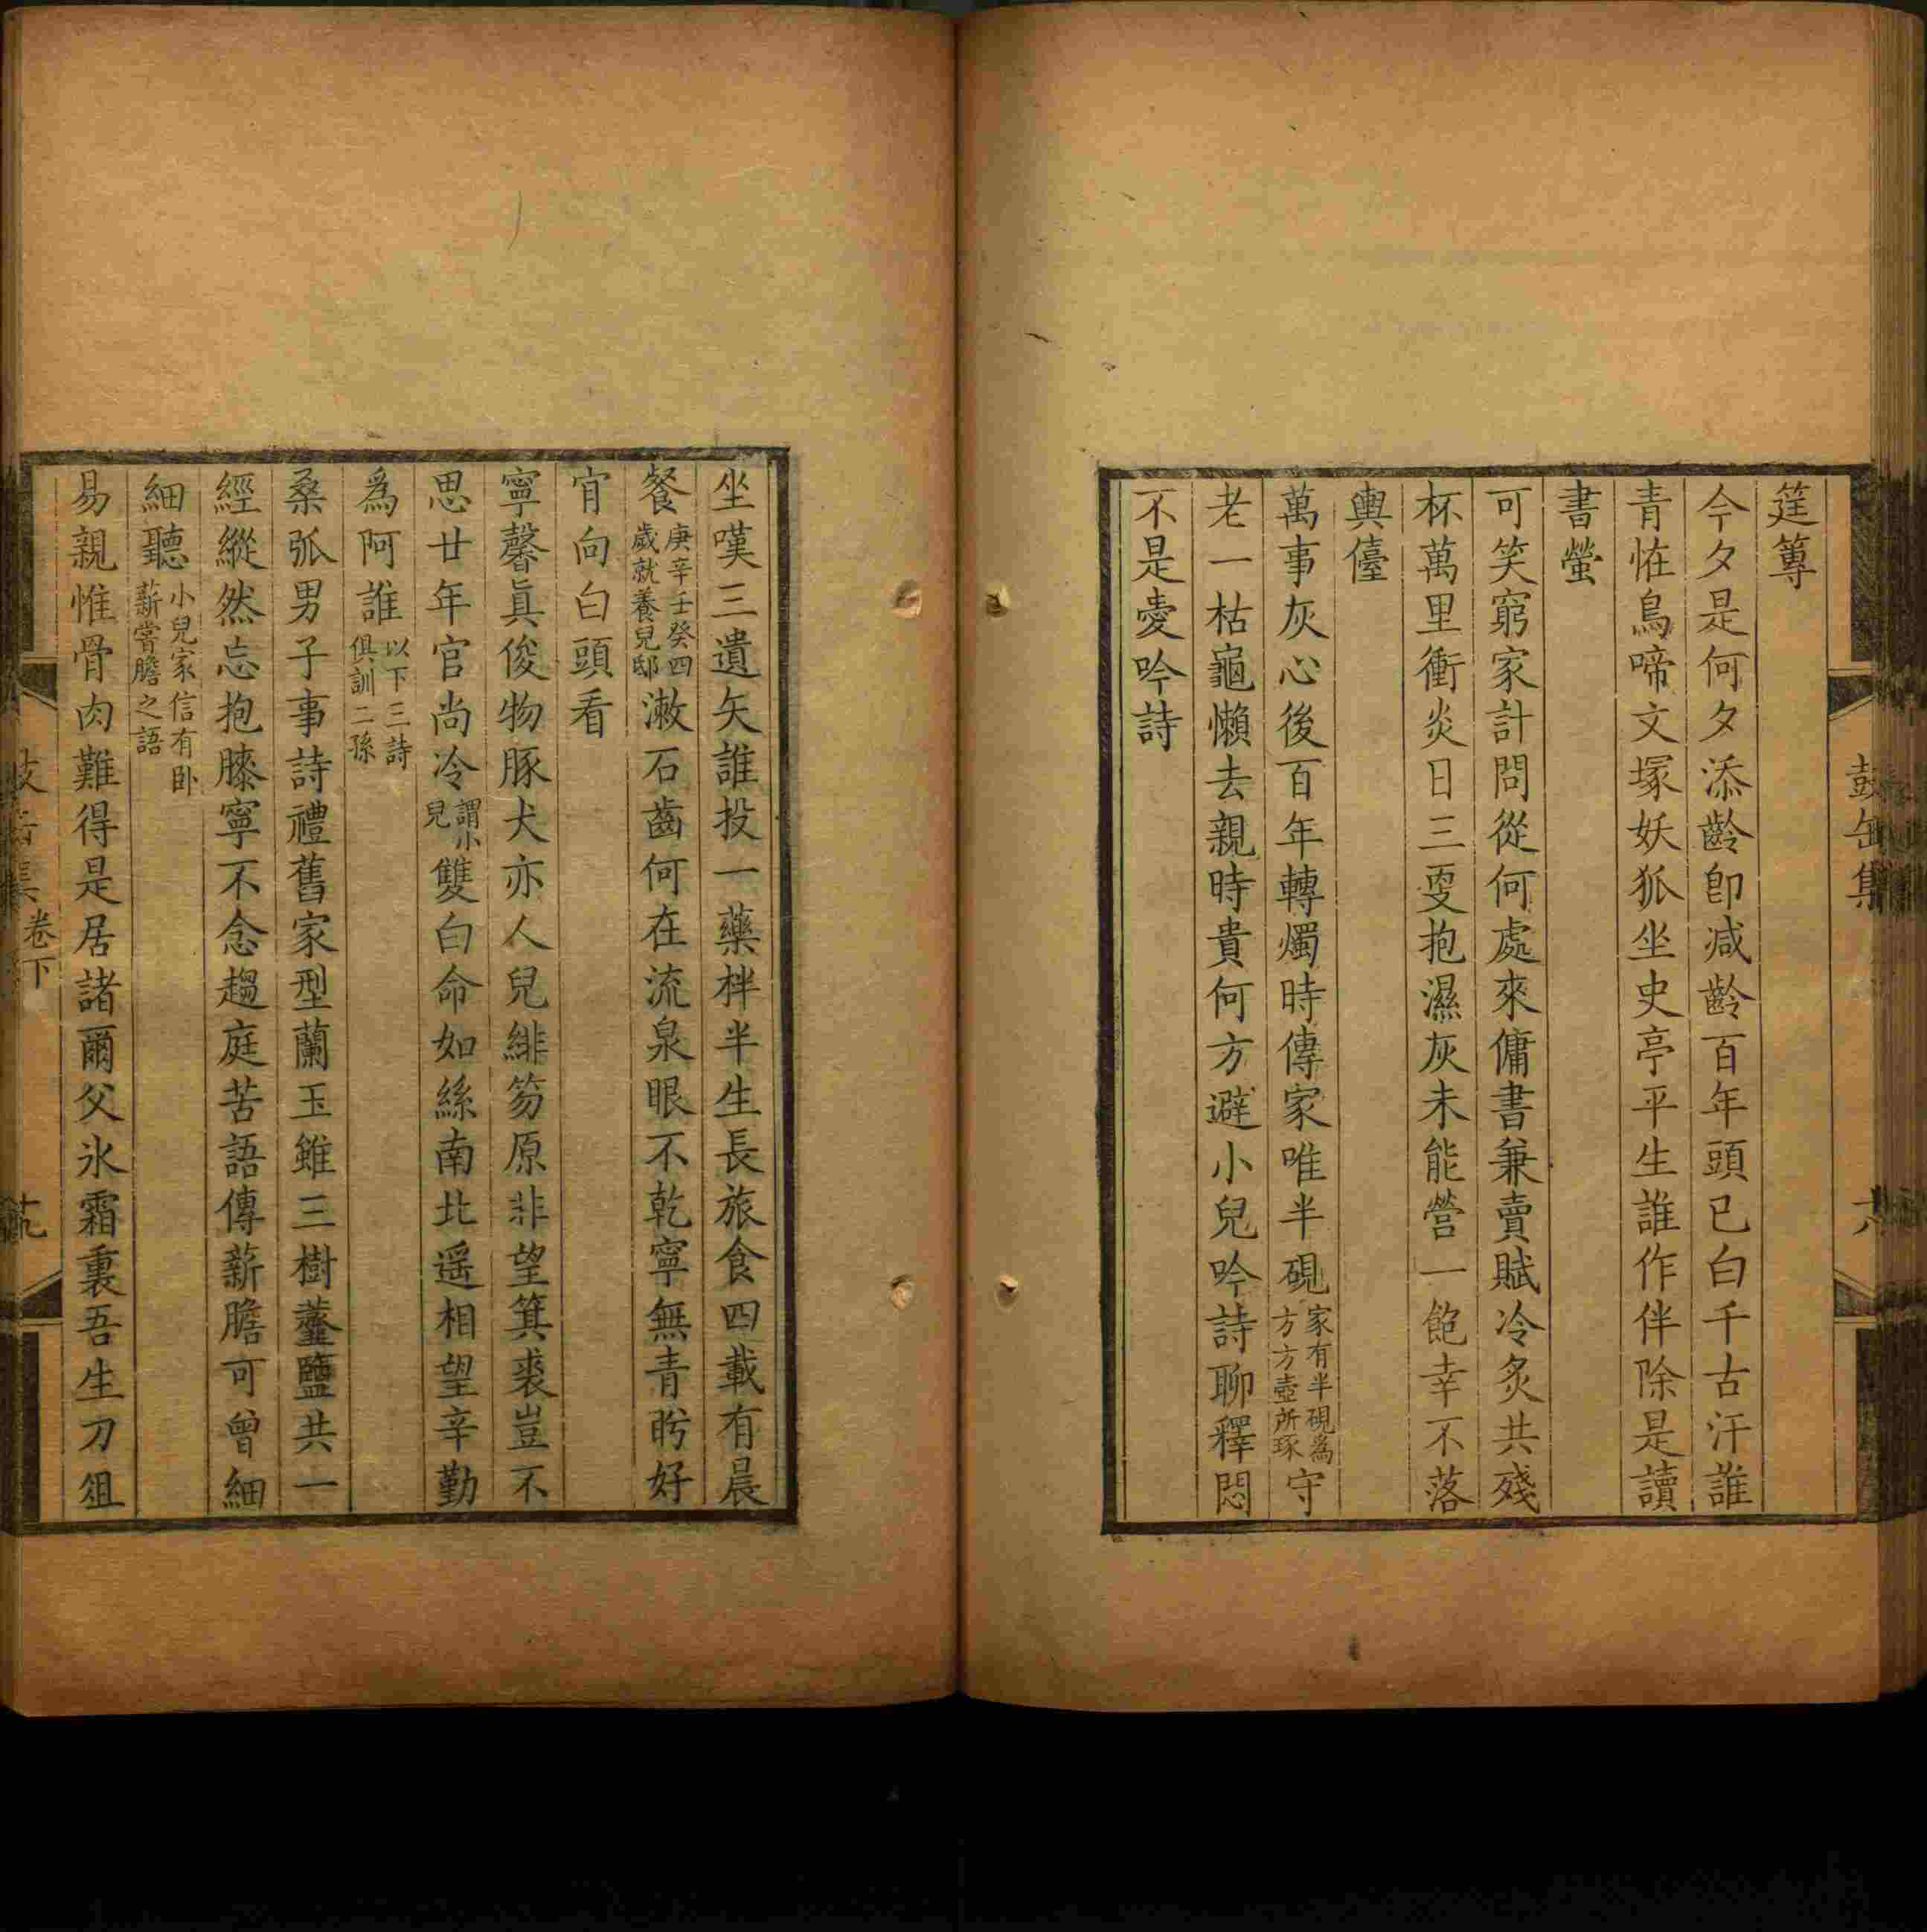 鼓缶集
筳篿
今夕是何夕添齡卽减齡百年頭已白千古汗誰
青怪鳥啼文塚妖狐坐史亭平生誰作伴除是讀
書螢
可笑窮家計問從何處來傭書兼賣賦冷炙共殘
杯萬里衝炎日三㪅抱濕灰未能營一飽幸不落
輿儓
萬事灰心後百年轉燭時傳家唯半硯家有半硯爲方方壺所琢守
老一枯龜懶去親時貴何方避小兒吟詩聊釋悶
不是愛吟詩
坐嘆三遺矢誰投一藥柈半生長旅食四載有晨
餐庚辛壬癸四歲就養兒邸漱石齒何在流泉眼不乾寧無青盻好
肎向白頭看
寧馨眞俊物豚犬亦人兒緋笏原非望箕裘豈不
思廿年官尚冷謂小兒雙白命如絲南北遥相望辛勤
爲阿誰以下三詩俱訓二孫
桑弧男子事詩禮舊家型蘭玉雖三樹虀鹽共一
經縱然忘抱膝寧不念趨庭苦語傳薪膽可曾細
細聽小兒家信有卧薪嘗膽之語
易親惟骨肉難得是居諸爾父氷霜裏吾生刀俎
卷下